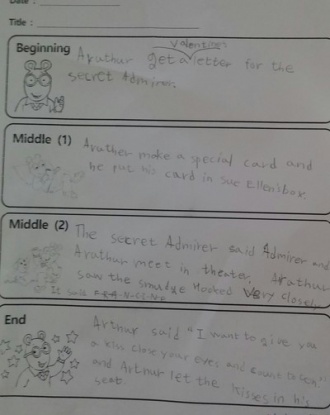 Date :
Title :
Beginning
Valentines
Arathur get a letter for the
secret Admirer.
Middle (1)
Arather make a special card and
he put his card in Sue Ellen's box.
Middle (2)
The secret Admirer said Admirer and
Arathur meet in theater, Arathur
saw the smudge looked very closely
It said
End
Arthur said "I want to give you
a kiss close your eyes and count to ten"
and Arthur let the kisses in his
seat.